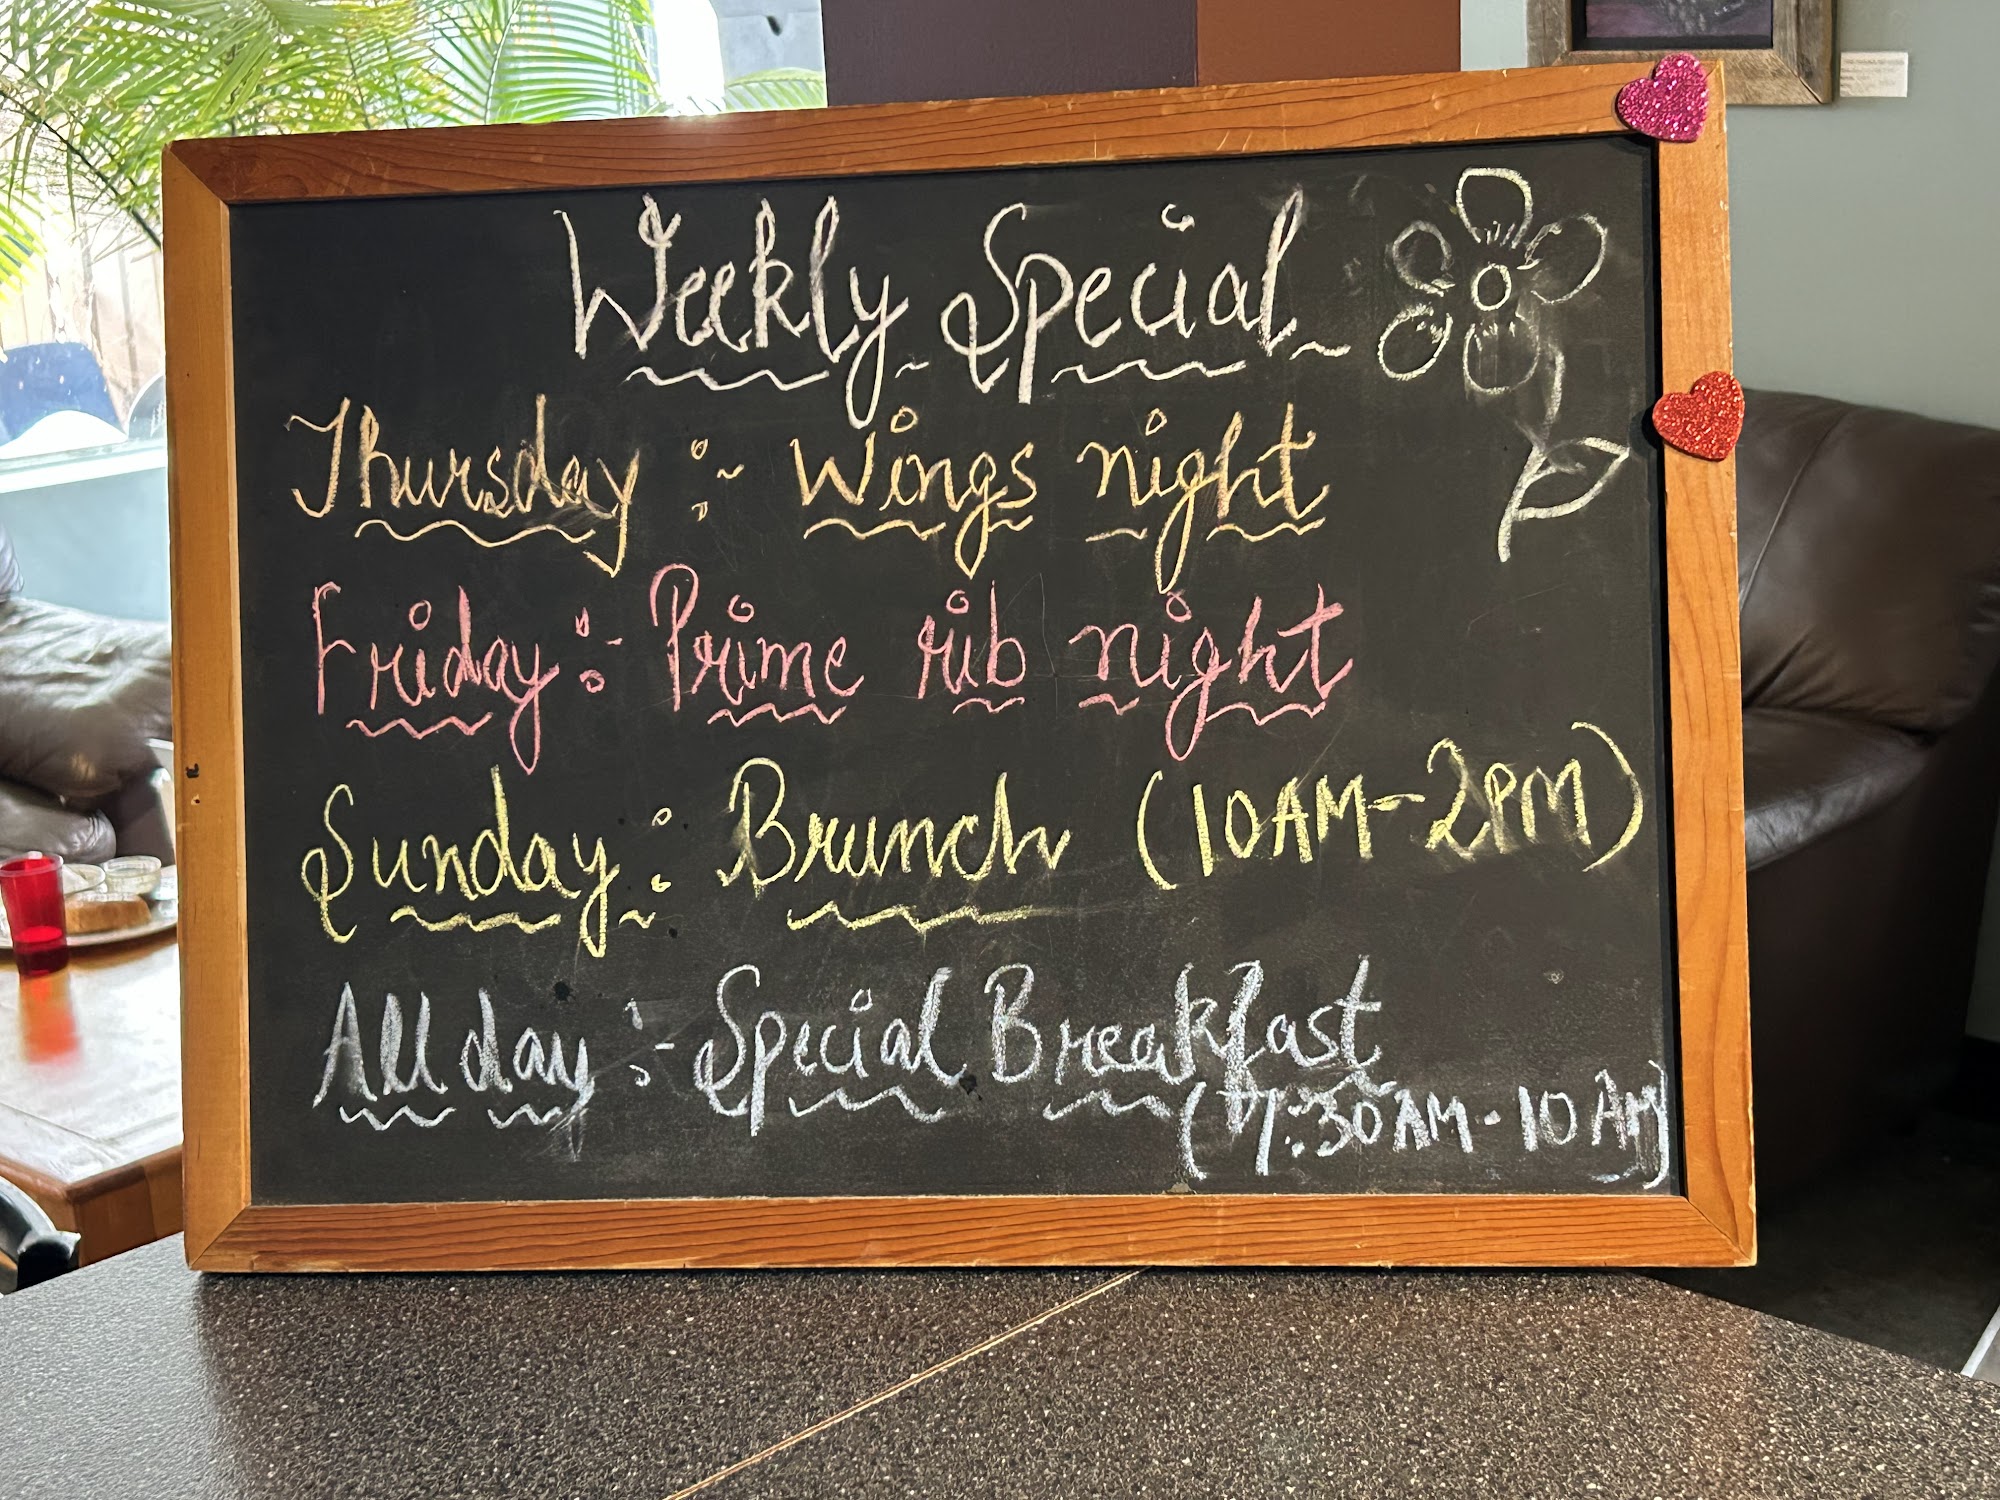 Weekly Special
Thursday :- Wings night
Friday :- Prime rib night
Sunday : Brunch (10AM-2PM)
All day :- Special Breakfast
(7:30AM-10AM)